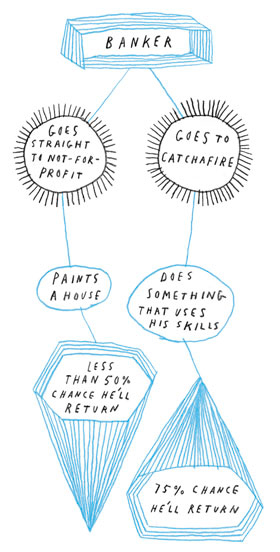 BANKER
GOES
STRAIGHT
TO NOT-FOR-
PROFIT
GOES TO
CATCHAFIRE
PAINTS
A HOUSE
DOES
SOMETHING
THAT USES
HIS SKILLS
LESS
THAN 50%
CHANCE HE'LL
RETURN
75% CHANCE
HE'LL RETURN